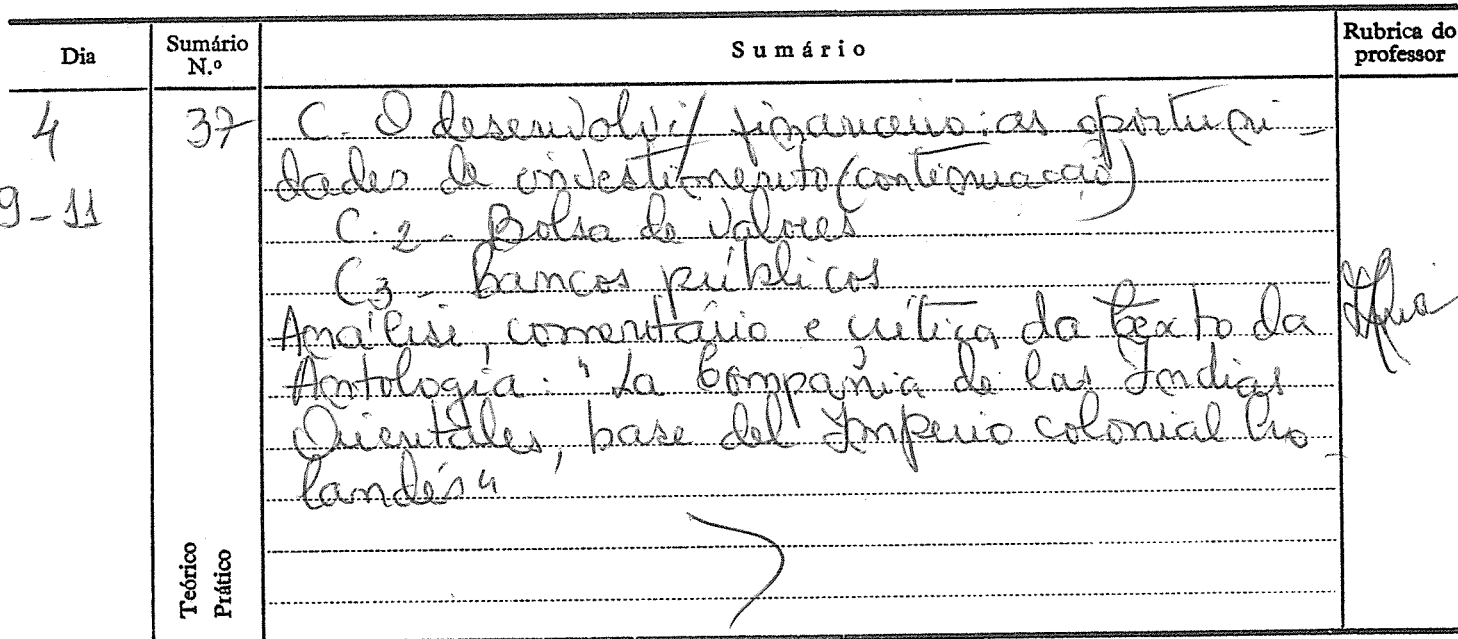 Dia
Sumário N.º
Sumário
Rubrica do professor
4
9-11
37
C - O desenvolvi/ financeiro: as oportuni-
dades de investimento (continuação)
C.2 - Bolsa de Valores
C3 - Bancos públicos
Análise, comentário e crítica do texto da
Antologia: "La Compañia de las Indias
Orientales, base del Imperio colonial ho-
landés"
Teórico
Prático